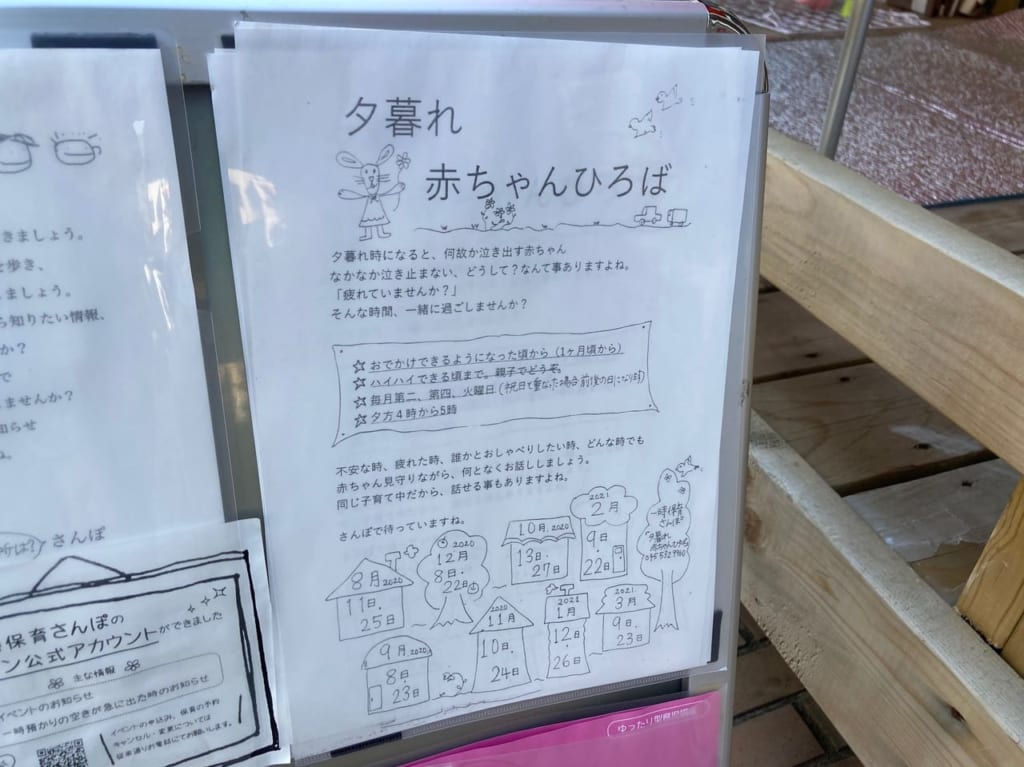 夕暮れ
赤ちゃんひろば
夕暮れ時になると、何故か泣き出す赤ちゃん
なかなか泣き止まない、どうして？なんて事ありますよね。
「疲れていませんか？」
そんな時間、一緒に過ごしませんか？
☆おでかけできるようになった頃から（1ヶ月頃から）
☆ハイハイできる頃まで。親子でどうぞ。
☆毎月第二、第四、火曜日（祝日と重なった場合前後の日になります）
☆夕方４時から5時
不安な時、疲れた時、誰かとおしゃべりしたい時、どんな時でも
赤ちゃん見守りながら、何となくお話ししましょう。
同じ子育て中だから、話せる事もありますよね。
さんぽで待っていますね。
8月2020
11日.
25日
2020
12月
8日.
22日
10月.2020
13日.
27日
2021
2月
9日.
22日
一時保育
さんぽ
夕暮れ
9月.2020
8日
23日
2020
11月
10日.
24日
2021
1月
12日
26日
2021.
3月
9日.
23日
きましょう。
を歩き、
ましょう。
ら知りたい情報、
か？
で
ませんか？
知らせ
ね。
所は？ さんぽ
保育さんぽの
ン公式アカウントができました
主な情報
イベントのお知らせ
一時預かりの空きが急に出た時のお知らせ
イベントの申込み、保育の予約
キャンセル・変更については
従来通りお電話にてお願いします。